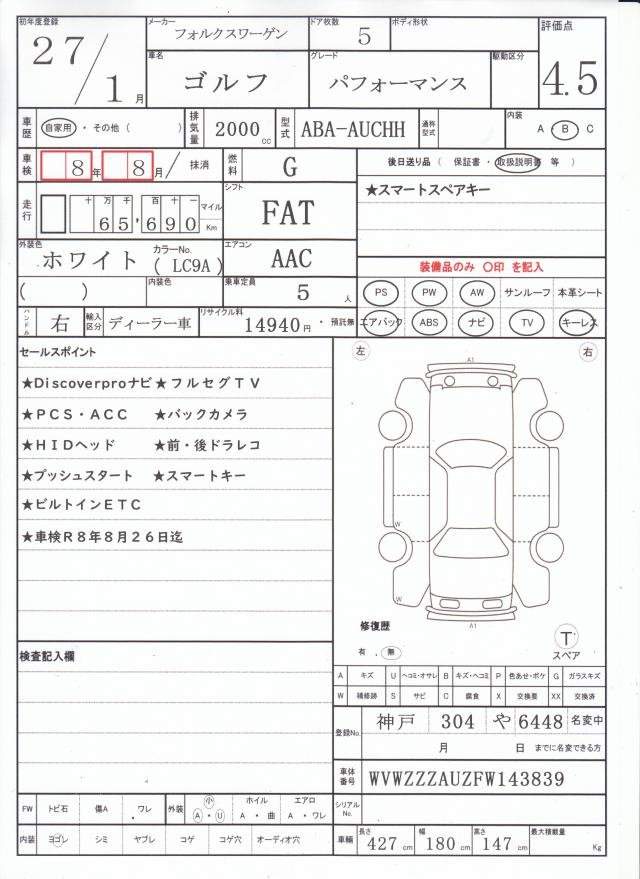 初年度登録 メーカー フォルクスワーゲン ドア枚数 5 ボディ形状 評価点
27/1月 車名 ゴルフ グレード パフォーマンス 駆動区分 4.5
車歴 自家用・その他( ) 排気量 2000cc 型式 ABA-AUCHH 通称型式 内装 A・B C
車検 8年8月/抹消 燃料 G 後日送り品(保証書・取扱説明書 等)
走行 十万千百十一 65,690 マイル Km シフト FAT ★スマートスペアキー
外装色 ホワイト カラーNo. (LC9A) エアコン AAC 装備品のみ 〇印 を記入
( ) 内装色 乗車定員 5人 PS PW AW サンルーフ 本革シート
ハンドル 右 輸入区分 ディーラー車 リサイクル料 14940円・預託無 エアバック ABS ナビ TV キーレス
セールスポイント 左 右
A1
★Discoverproナビ★フルセグTV
★PCS・ACC ★バックカメラ
★HIDヘッド ★前・後ドラレコ
★プッシュスタート ★スマートキー
★ビルトインETC
W
★車検R8年8月26日迄
W
A1
修復歴
有 . 無 T
スペア
検査記入欄
A キズ U ヘコミ・オサレ B キズ・ヘコミ P 色あせ・ボケ G ガラスキズ
W 補修跡 S サビ C 腐食 X 交換要 XX 交換済
登録No. 神戸 304 や 6448 名変中
月 日 までに名変できる方
車体番号 WVWZZZAUZFW143839
FW トビ石 傷A ワレ 外装 小 A・U ホイル A・曲 エアロ A・ワレ シリアルNo.
内装 ヨゴレ シミ ヤブレ コゲ コゲ穴 オーディオ穴 車輛 長さ 427cm 幅 180cm 高さ 147cm 最大積載量 Kg